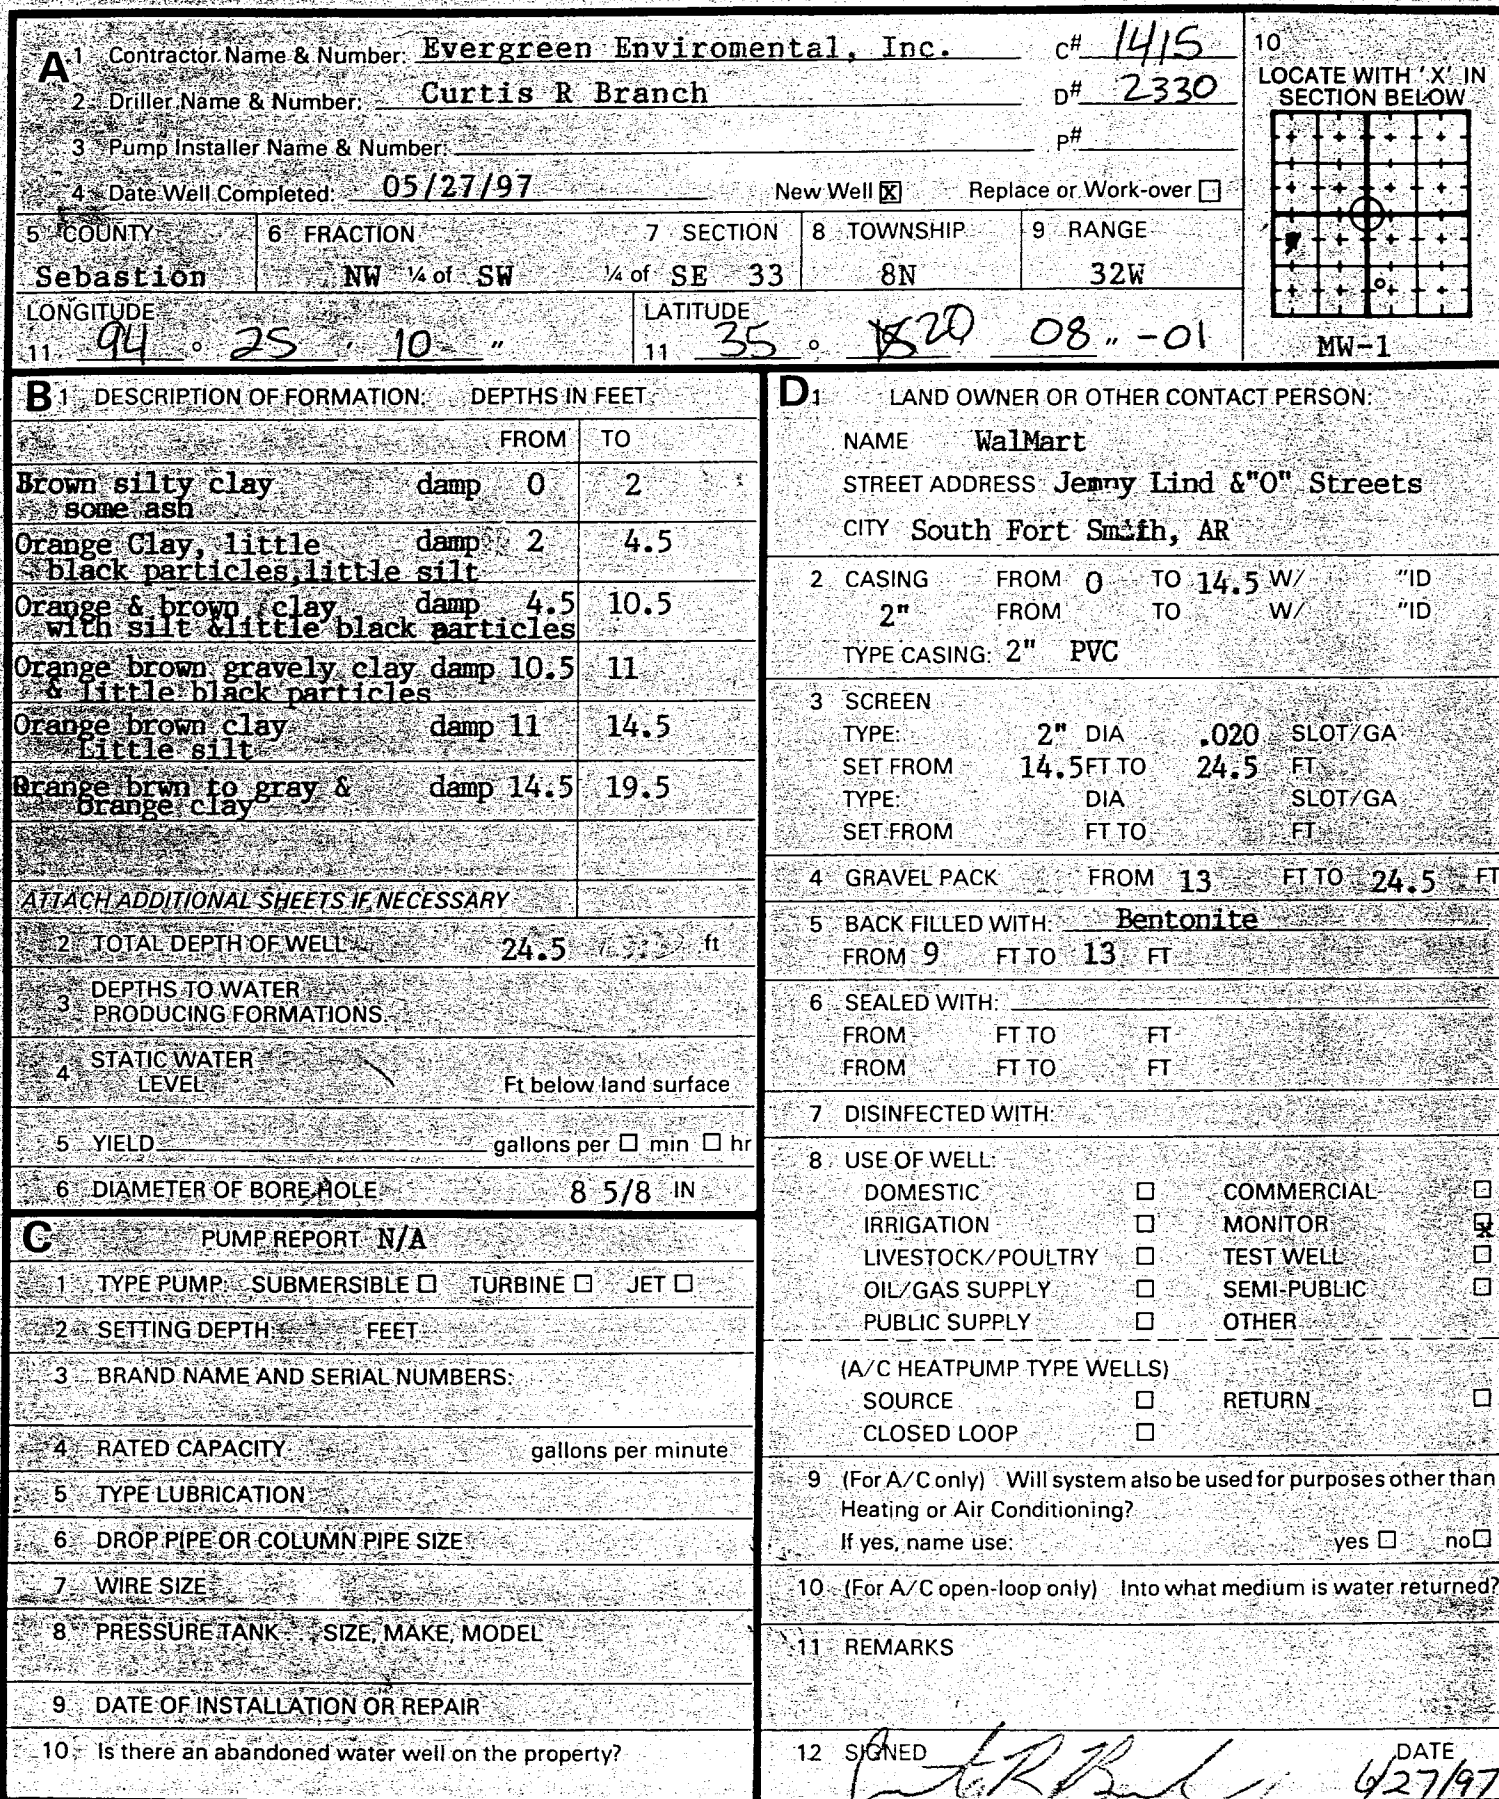 A 1 Contractor Name & Number: Evergreen Enviromental, Inc. C# 1415
2 Driller Name & Number: Curtis R Branch D# 2330
3 Pump Installer Name & Number: P#
4 Date Well Completed: 05/27/97 New Well X Replace or Work-over
5 COUNTY 6 FRACTION 7 SECTION 8 TOWNSHIP 9 RANGE
Sebastion NW ¼ of SW ¼ of SE 33 8N 32W
LONGITUDE LATITUDE
11 94 ° 25 ' 10 " 11 35 ° 20 08 " -01
10
LOCATE WITH 'X' IN
SECTION BELOW
MW-1
B 1 DESCRIPTION OF FORMATION: DEPTHS IN FEET
FROM TO
Brown silty clay damp 0 2
some ash
Orange Clay, little damp 2 4.5
black particles,little silt
Orange & brown clay damp 4.5 10.5
with silt &little black particles
Orange brown gravely clay damp 10.5 11
& little black particles
Orange brown clay damp 11 14.5
Little silt
Orange brwn to gray & damp 14.5 19.5
orange clay
ATTACH ADDITIONAL SHEETS IF NECESSARY
2 TOTAL DEPTH OF WELL 24.5 ft
3 DEPTHS TO WATER
PRODUCING FORMATIONS
4 STATIC WATER
LEVEL Ft below land surface
5 YIELD gallons per min hr
6 DIAMETER OF BORE HOLE 8 5/8 IN
C PUMP REPORT N/A
1 TYPE PUMP: SUBMERSIBLE TURBINE JET
2 SETTING DEPTH: FEET
3 BRAND NAME AND SERIAL NUMBERS:
4 RATED CAPACITY gallons per minute
5 TYPE LUBRICATION
6 DROP PIPE OR COLUMN PIPE SIZE
7 WIRE SIZE
8 PRESSURE TANK SIZE, MAKE, MODEL
9 DATE OF INSTALLATION OR REPAIR
10 Is there an abandoned water well on the property?
D 1 LAND OWNER OR OTHER CONTACT PERSON:
NAME WalMart
STREET ADDRESS Jenny Lind &"O" Streets
CITY South Fort Smith, AR
2 CASING FROM 0 TO 14.5 W/ "ID
2" FROM TO W/ "ID
TYPE CASING: 2" PVC
3 SCREEN
TYPE: 2" DIA .020 SLOT/GA
SET FROM 14.5 FT TO 24.5 FT
TYPE: DIA SLOT/GA
SET FROM FT TO FT
4 GRAVEL PACK FROM 13 FT TO 24.5 FT
5 BACK FILLED WITH: Bentonite
FROM 9 FT TO 13 FT
6 SEALED WITH:
FROM FT TO FT
FROM FT TO FT
7 DISINFECTED WITH:
8 USE OF WELL:
DOMESTIC COMMERCIAL
IRRIGATION MONITOR X
LIVESTOCK/POULTRY TEST WELL
OIL/GAS SUPPLY SEMI-PUBLIC
PUBLIC SUPPLY OTHER
(A/C HEATPUMP TYPE WELLS)
SOURCE RETURN
CLOSED LOOP
9 (For A/C only) Will system also be used for purposes other than
Heating or Air Conditioning?
If yes, name use: yes no
10 (For A/C open-loop only) Into what medium is water returned?
11 REMARKS
12 SIGNED DATE
6/27/97